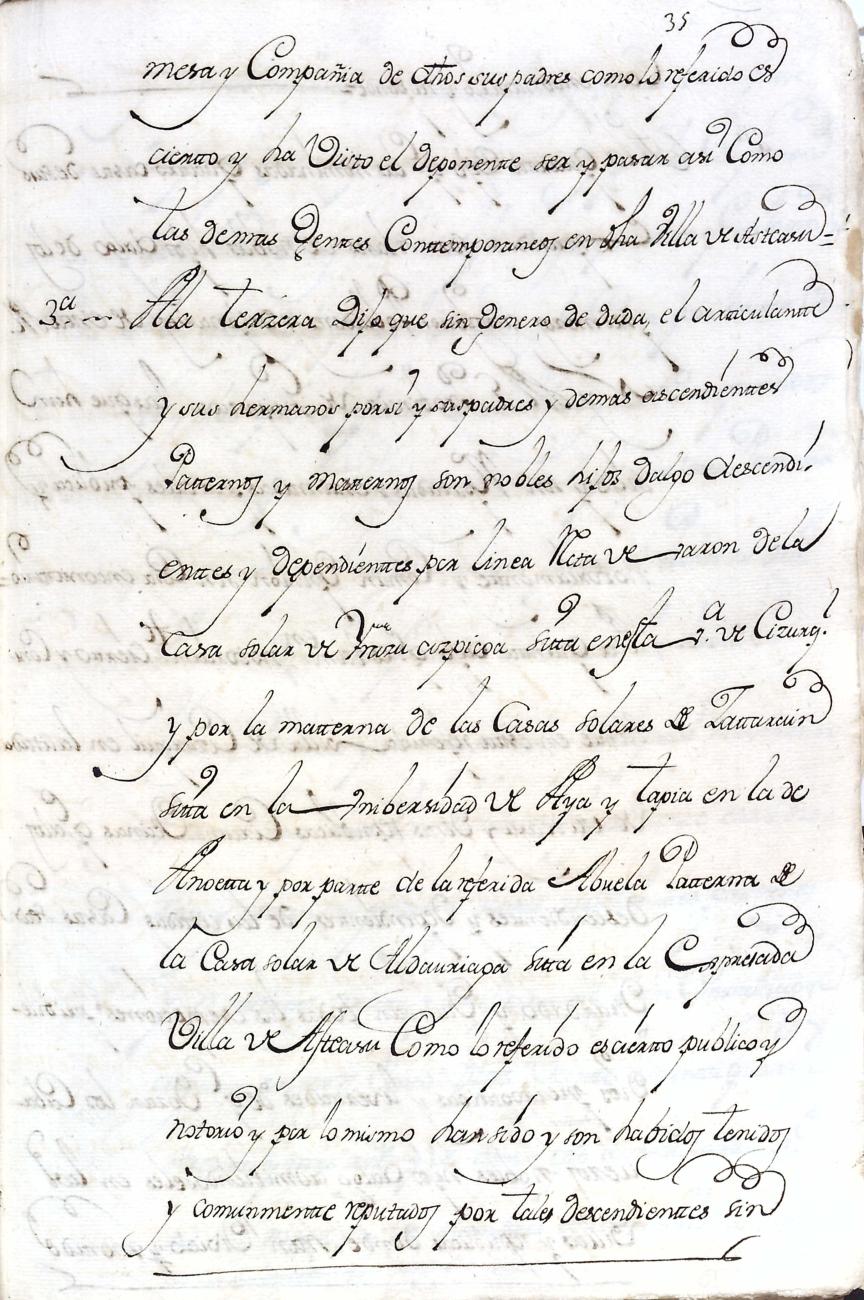 35
mesa y Compañia de dhos sus padres como lo referido es
cierto y ha Visto el deponente ser y pasar asi Como
las demas Gentes Contemporaneos en dha Villa de Asteasu=
3a - A la terzera Dijo que sin Genero de duda, el articulante
y sus hermanos por si y sus padres y demas ascendientes
Patternos y Matternos son nobles hijos dalgo descendi-
enttes y dependienttes por linea Recta de varon de la
Casa solar de azpicoa sitta en esta va. de Cizurql
y por la matterna de las Casas solares de Lattarain
sitta en la Universidad de Aya y tapia en la de
Anoetta y por partte de la referida Abuela Patterna de
la Casa solar de Aldauriapa sitta en la Expresada
Villa de Asteasu Como lo referido es cierto publico y
notorio y por lo mismo han sido y son habidos tenidos
y comunmentte reputados por tales descendienttes sin